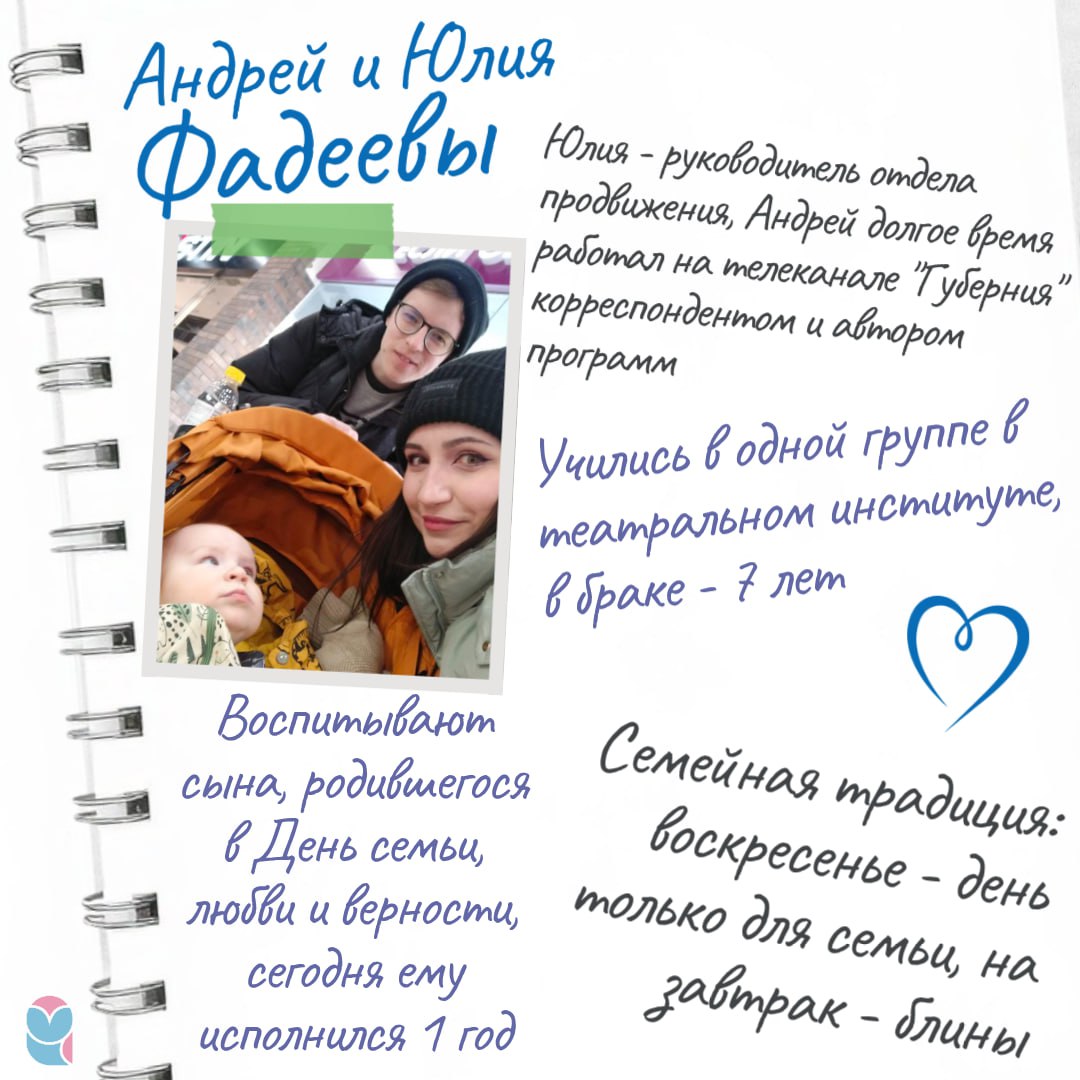 Андрей и Юлия
Фадеевы
Юлия - руководитель отдела
продвижения, Андрей долгое время
работал на телеканале "Губерния"
корреспондентом и автором
программ
Учились в одной группе в
театральном институте,
в браке - 7 лет
Воспитывают
сына, родившегося
в День семьи,
любви и верности,
сегодня ему
исполнился 1 год
Семейная традиция:
воскресенье - день
только для семьи, на
завтрак - блины